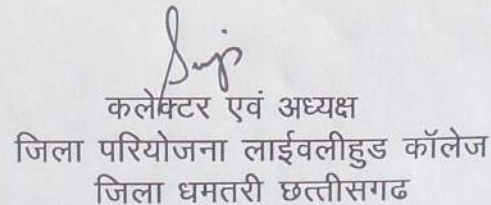 कलेक्टर एवं अध्यक्ष
जिला परियोजना लाईवलीहुड कॉलेज
जिला धमतरी छत्तीसगढ